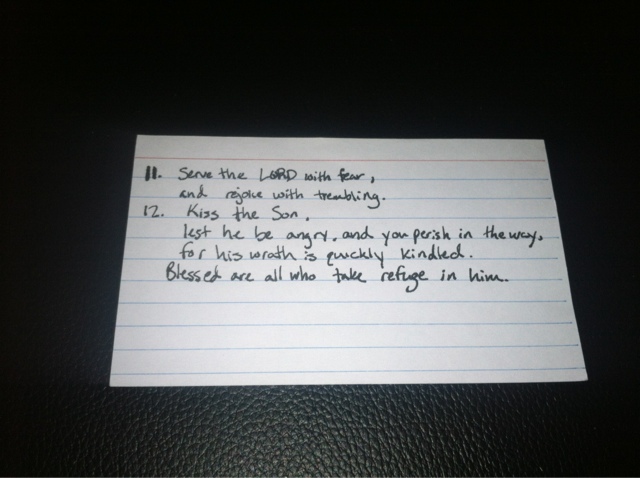 11. Serve the LORD with fear,
and rejoice with trembling.
12. Kiss the Son,
lest he be angry, and you perish in the way,
for his wrath is quickly kindled.
Blessed are all who take refuge in him.